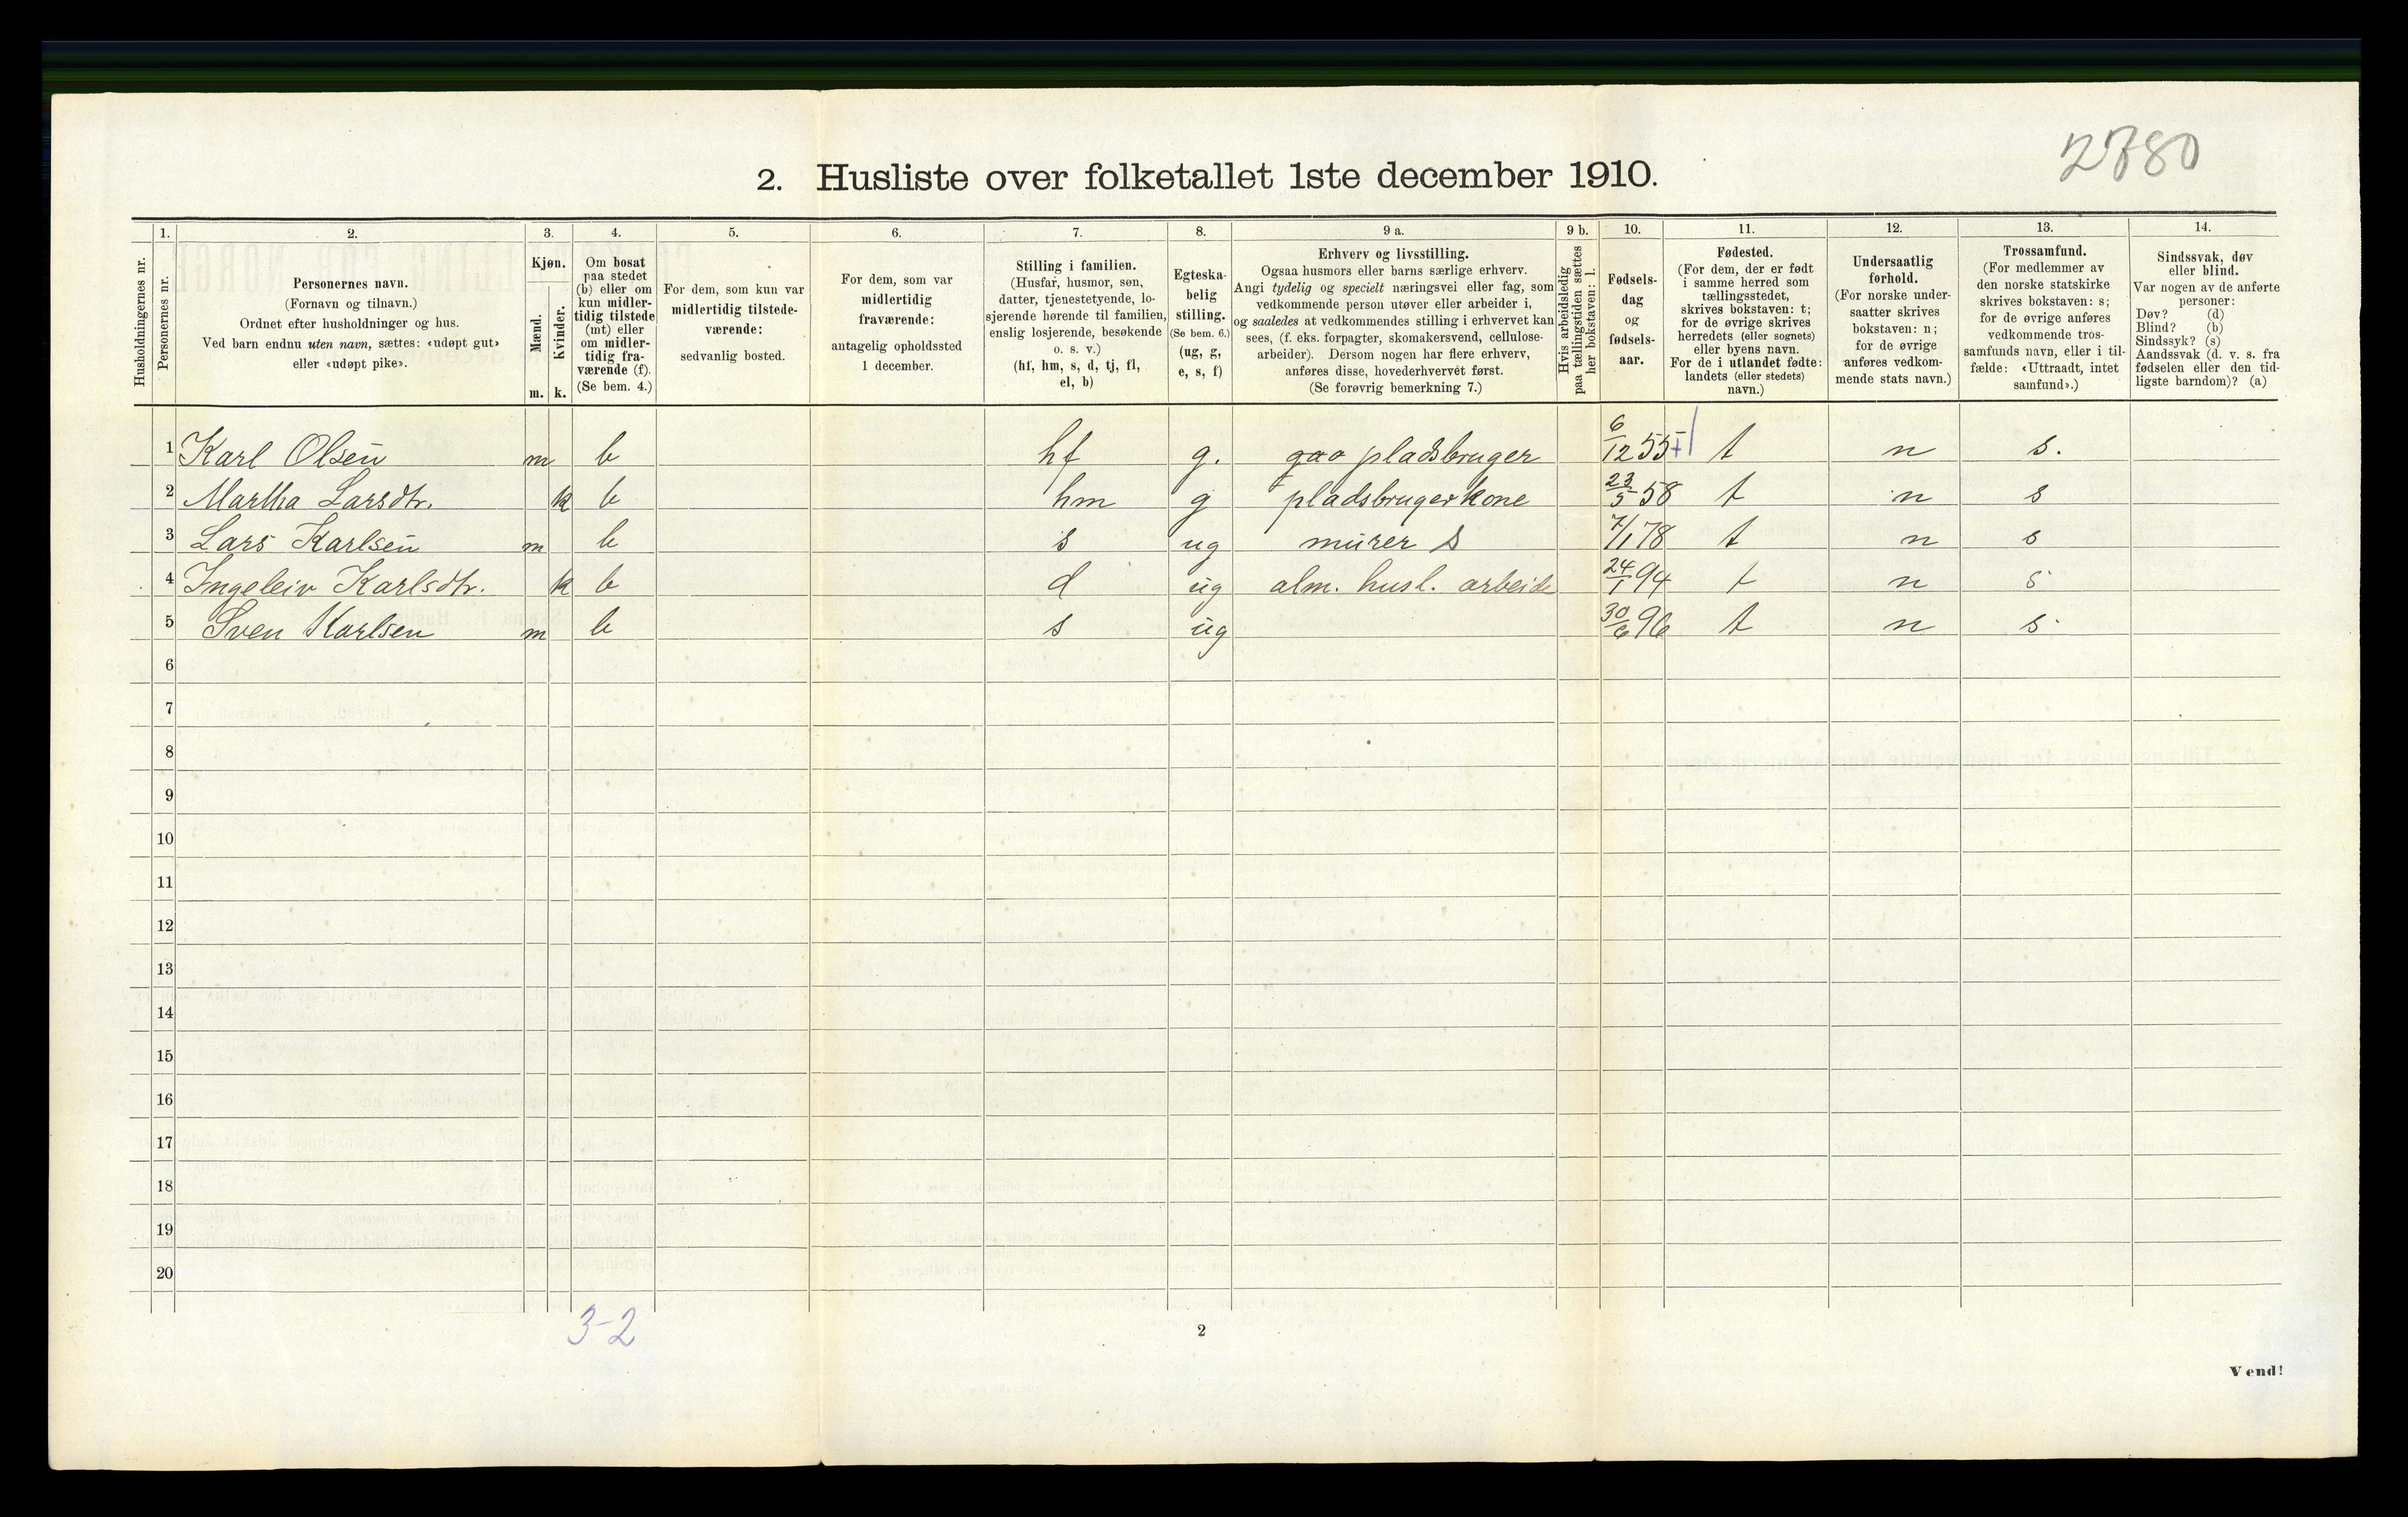 2780
2. Husliste over folketallet 1ste december 1910.
Husholdningernes nr.
1. Personernes nr.
2. Personernes navn. (Fornavn og tilnavn.) Ordnet efter husholdninger og hus. Ved barn endnu uten navn, sættes: «udøpt gut» eller «udøpt pike».
3. Kjøn. Mænd. m. Kvinder. k.
4. Om bosat paa stedet (b) eller om kun midlertidig tilstede (mt) eller om midlertidig fraværende (f). (Se bem. 4.)
5. For dem, som kun var midlertidig tilstedeværende: sedvanlig bosted.
6. For dem, som var midlertidig fraværende: antagelig opholdssted 1 december.
7. Stilling i familien. (Husfar, husmor, søn, datter, tjenestetyende, losjerende hørende til familien, enslig losjerende, besøkende o. s. v.) (hf, hm, s, d, tj, fl, el, b)
8. Egteskabelig stilling. (Se bem. 6.) (ug, g, e, s, f)
9 a. Erhverv og livsstilling. Ogsaa husmors eller barns særlige erhverv. Angi tydelig og specielt næringsvei eller fag, som vedkommende person utøver eller arbeider i, og saaledes at vedkommendes stilling i erhvervet kan sees, (f. eks. forpagter, skomakersvend, cellulosearbeider). Dersom nogen har flere erhverv, anføres disse, hovederhvervet først. (Se forøvrig bemerkning 7.)
9 b. Hvis arbeidsledig paa tællingstiden sættes her bokstaven: l.
10. Fødselsdag og fødselsaar.
11. Fødested. (For dem, der er født i samme herred som tællingsstedet, skrives bokstaven: t; for de øvrige skrives herredets (eller sognets) eller byens navn. For de i utlandet fødte: landets (eller stedets) navn.)
12. Undersaatlig forhold. (For norske undersaatter skrives bokstaven: n; for de øvrige anføres vedkommende stats navn.)
13. Trossamfund. (For medlemmer av den norske statskirke skrives bokstaven: s; for de øvrige anføres vedkommende trossamfunds navn, eller i tilfælde: «Uttraadt, intet samfund».)
14. Sindssvak, døv eller blind. Var nogen av de anførte personer: Døv? (d) Blind? (b) Sindssyk? (s) Aandssvak (d. v. s. fra fødselen eller den tidligste barndom)? (a)
1 Karl Olsen m b hf g. pladsbruger 6/12 55 t n s.
2 Martha Larsdtr. k b hm g pladsbrugerkone 23/5 58 t n s
3 Lars Karlsen m b s ug murer s 7/1 78 t n s
4 Ingeleiv Karlsdtr. k b d ug alm. husl. arbeide 24/1 94 t n s
5 Sven Karlsen m b s ug 30/6 96 t n s
6
7
8
9
10
11
12
13
14
15
16
17
18
19
20
3-2
2
Vend!